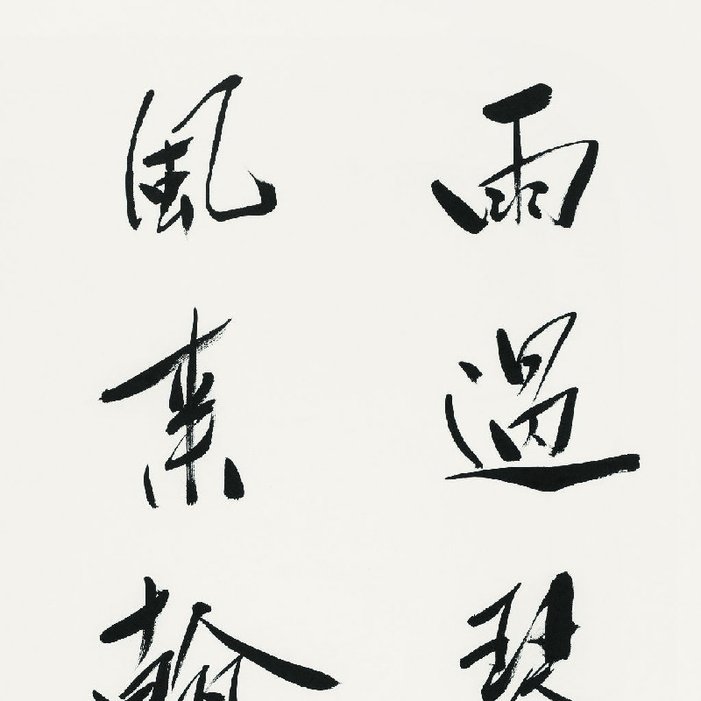 雨過琴
風來翰